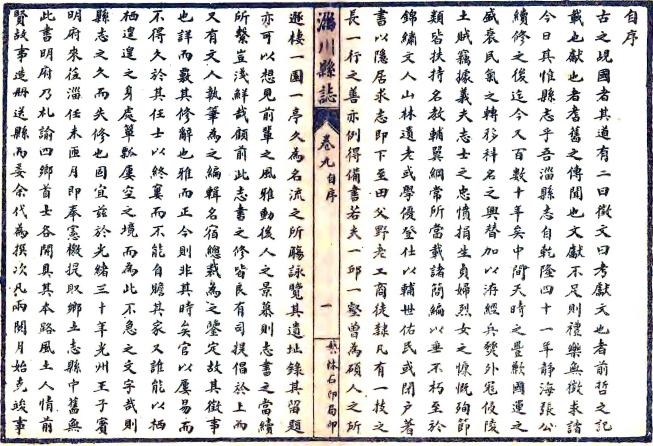 自序
古之覘國者其道有二曰徵文曰考獻文也者前哲之記
載也獻也者耆舊之傳聞也文獻不足則禮樂無徵求諸
今日其惟縣志乎吾淄縣志自乾隆四十一年靜海張公
續修之後迄今又百數十年矣中間天時之豐歉國運之
盛衰民氣之轉移科名之興替加以洊經兵燹外寇侵陵
土賊竊據義夫志士之忠憤捐生貞婦烈女之慷慨殉節
類皆扶持名教輔翼綱常所當載諸簡編以垂不朽至於
錦繡文人山林遺老或學優登仕以輔世佑民或閉戶著
書以隱居求志即下至田父野老工商徒隸凡有一技之
長一行之善亦例得備書若夫一邱一壑曾為碩人之所
淄川縣誌
卷九自序
一
藝林石印局印
遊棲一園一亭久為名流之所觴詠覽其遺址錄其留題
亦可以想見前輩之風雅動後人之景慕則志書之當續
所繫豈淺鮮哉顧前此志書之修皆良有司提倡於上而
又有文人執筆為之編輯名宿總裁為之鑒定故其徵事
也詳而覈其修辭也雅而正今則非其時矣官以屢易而
不得久於其任士以終窶而不能自贍其家又誰能以栖
栖遑遑之身處簞瓢屢空之境而為此不急之文字哉則
縣志之久而失修也固宜茲於光緒三十年光州王子賓
明府來蒞淄任未匝月即奉憲檄提取鄉土志縣中舊無
此書明府乃札諭四鄉首士各開具其本路風土人情前
賢故事造册送縣而委余代為撰次凡兩閱月始克竣事